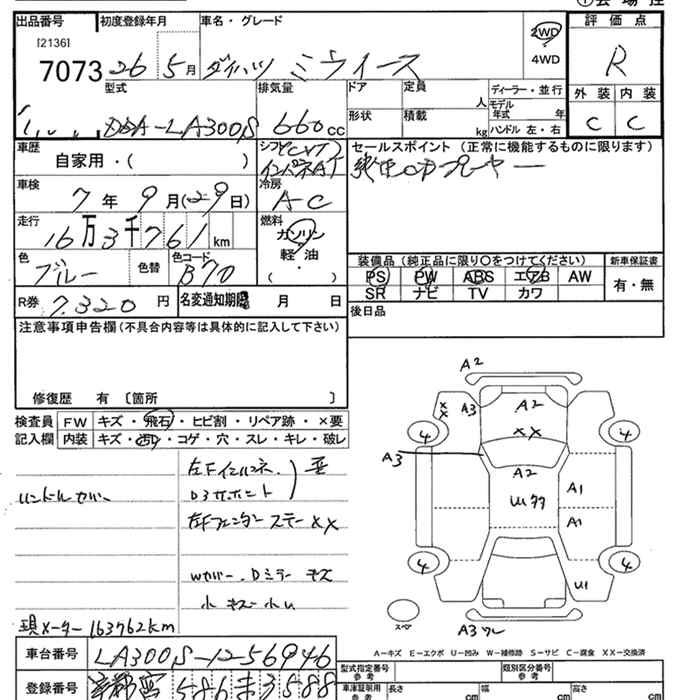 出品番号 初度登録年月 車名・グレード 評価点
[2136]
7073 26 5月 ダイハツ ミライース 2WD R
4WD
型式 排気量 ドア 定員 人 ディーラー・並行 外装 内装
モデル年式 年
DBA-LA300S 660cc 形状 積載 kg ハンドル 左・右 C C
車歴 シフト セールスポイント(正常に機能するものに限ります)
自家用・( ) CVT インパネAT
車検 冷房
7年9月(29日) AC
走行 燃料
16万3千761km ガソリン
軽油
色 色替 色コード ( ・ )
ブルー B70
装備品(純正品に限り○をつけてください) 新車保証書
PS PW ABS エアB AW 有・無
SR ナビ TV カワ
R券 7,320円 名変通知期限 月 日
後日品
注意事項申告欄(不具合内容等は具体的に記入して下さい)
修復歴 有 [箇所 ]
検査員 FW キズ・飛石・ヒビ割・リペア跡・×要
記入欄 内装 キズ・汚レ・コゲ・穴・スレ・キレ・破レ
ハンドルカバー
左Fインパネ
D3サポート
左Fフェンダーステー ××
Wカバー、Dミラー キズ
小キズ小U
現メーター163762km
A2
XX A3 A2
4 XX 4
A3
A2
U19タ A1
A1
4 4
U1
スペア
A3ワレ
A-キズ E-エクボ U-凹み W-補修跡 S-サビ C-腐食 XX-交換済
車台番号 LA300S-1256946
型式指定番号 類別区分番号
参考 参考
登録番号 宇都宮 586 ま 3588
車庫証明用 長さ 幅 高さ
参考 cm cm cm